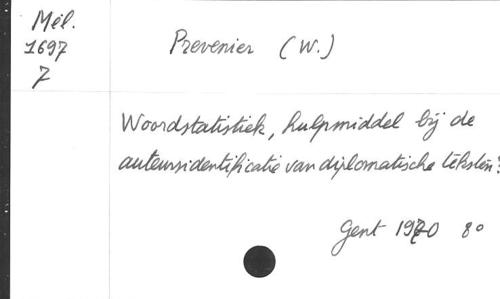 Mél.
1697
7
Prevenier (W.)
Woordstatistiek, hulpmiddel bij de
auteursidentificatie van diplomatische teksten?
Gent 1970 8°